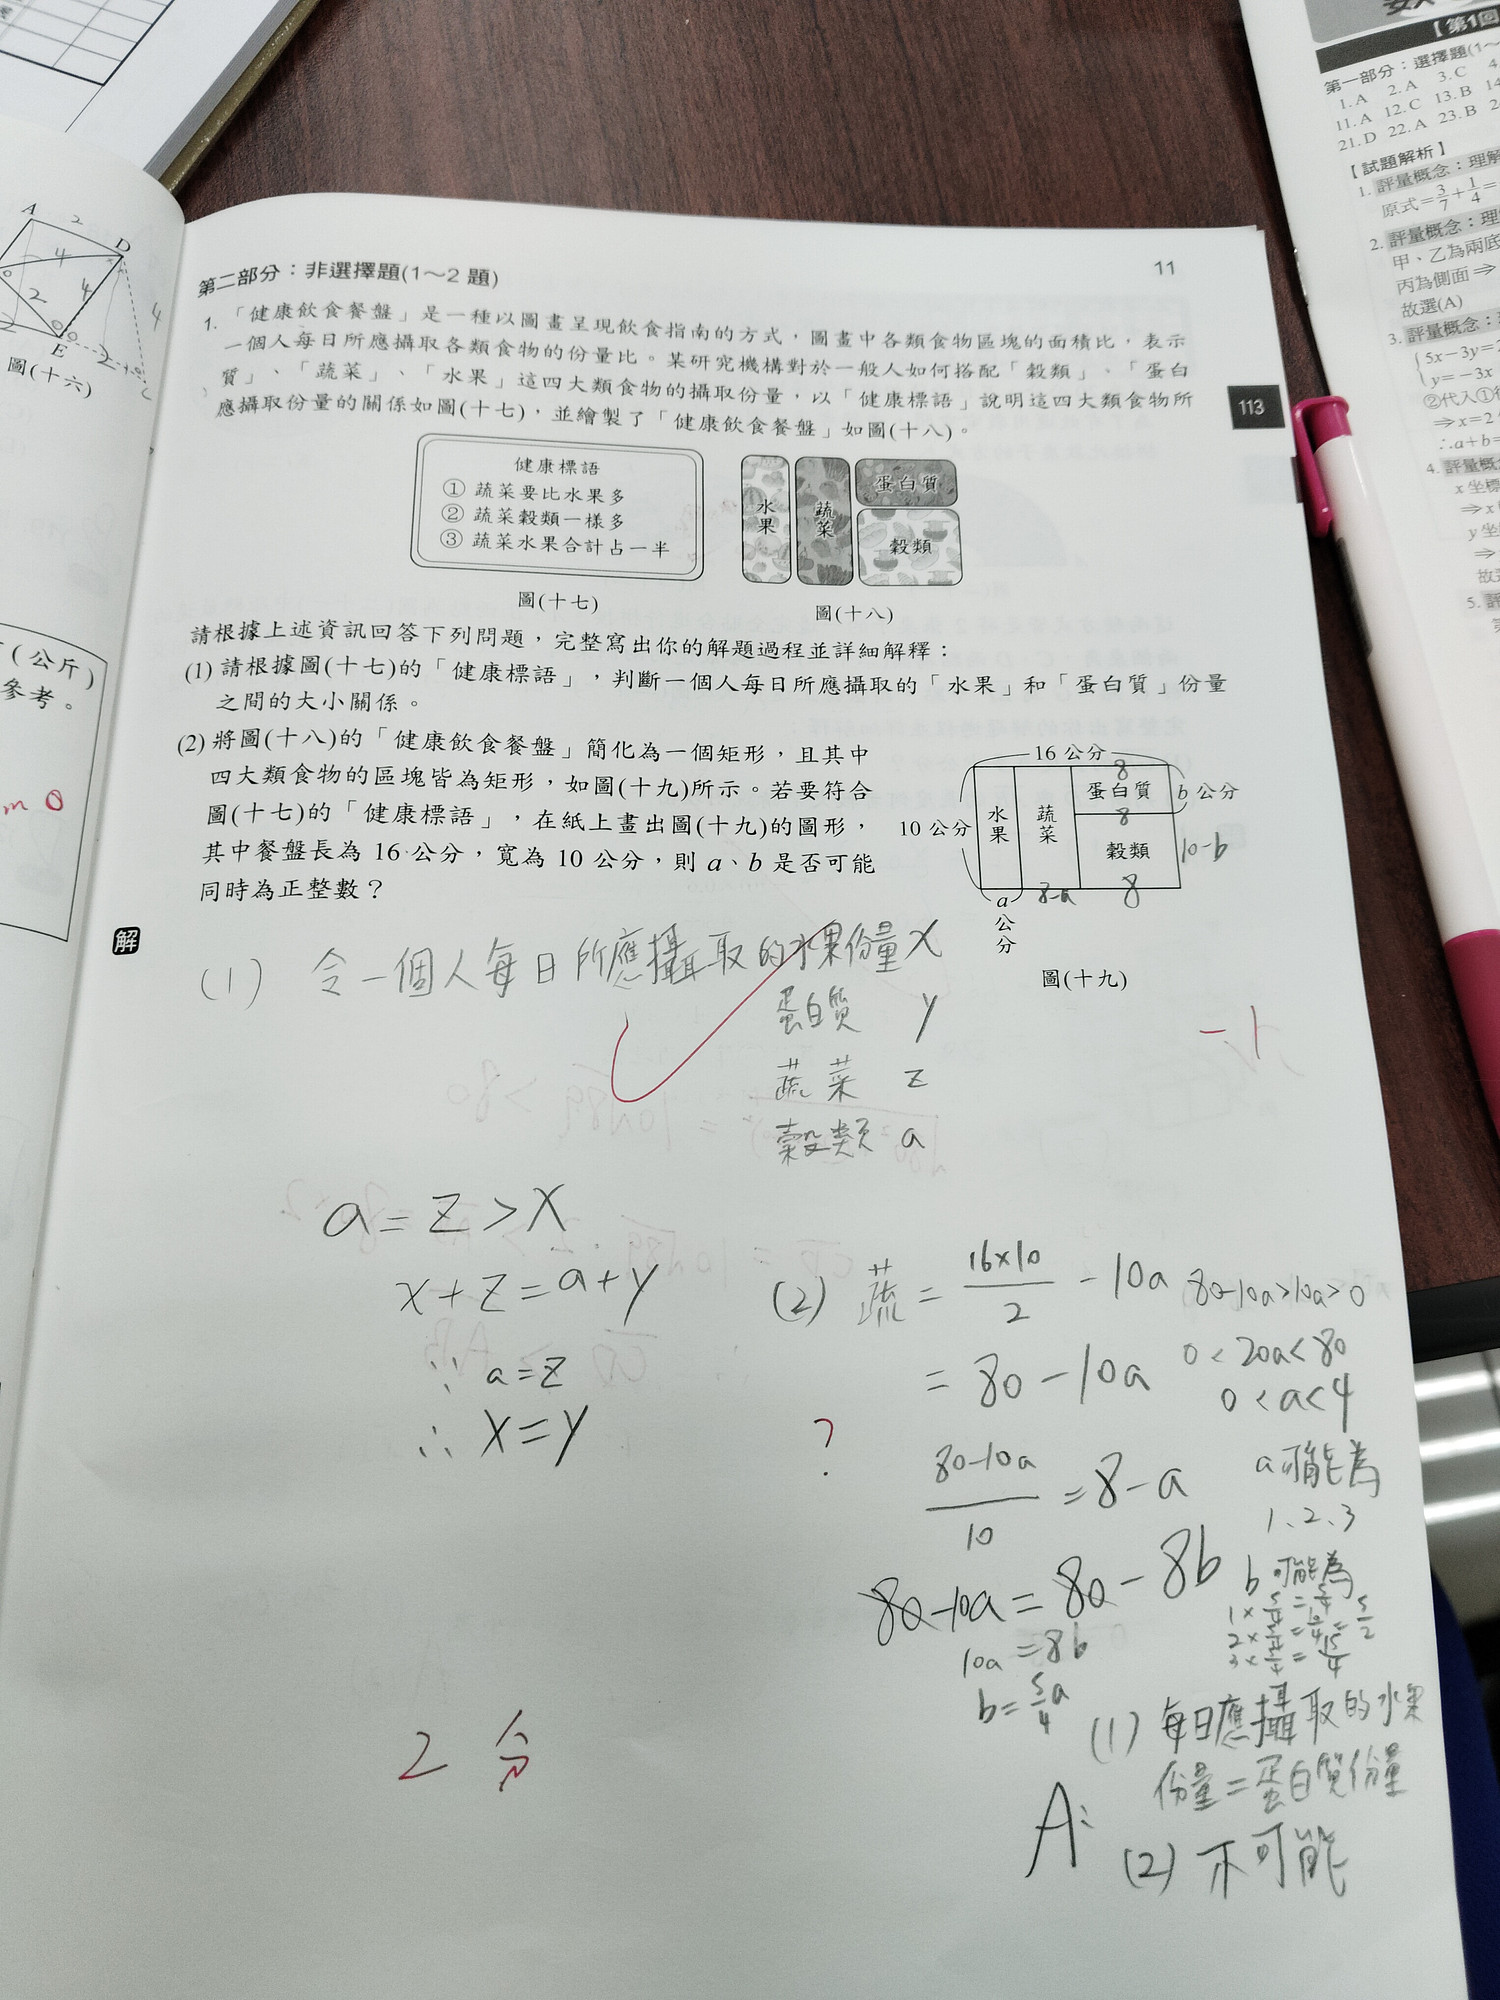 11
第二部分：非選擇題(1～2 題)
1. 「健康飲食餐盤」是一種以圖畫呈現飲食指南的方式，圖畫中各類食物區塊的面積比，表示
一個人每日所應攝取各類食物的份量比。某研究機構對於一般人如何搭配「穀類」、「蛋白
質」、「蔬菜」、「水果」這四大類食物的攝取份量，以「健康標語」說明這四大類食物所
應攝取份量的關係如圖(十七)，並繪製了「健康飲食餐盤」如圖(十八)。
113
健康標語
① 蔬菜要比水果多
② 蔬菜穀類一樣多
③ 蔬菜水果合計占一半
圖(十七)
水果
蔬菜
蛋白質
穀類
圖(十八)
請根據上述資訊回答下列問題，完整寫出你的解題過程並詳細解釋：
(1) 請根據圖(十七)的「健康標語」，判斷一個人每日所應攝取的「水果」和「蛋白質」份量
之間的大小關係。
(2) 將圖(十八)的「健康飲食餐盤」簡化為一個矩形，且其中
四大類食物的區塊皆為矩形，如圖(十九)所示。若要符合
圖(十七)的「健康標語」，在紙上畫出圖(十九)的圖形，
其中餐盤長為 16 公分，寬為 10 公分，則 a、b 是否可能
同時為正整數？
16 公分
8
蛋白質
b 公分
8
10 公分
水果
蔬菜
穀類
10-b
8-a
8
a
公
分
圖(十九)
解
(1) 令一個人每日所應攝取的水果份量 x
蛋白質 y
蔬菜 z
穀類 a
-1
a=z>x
x+z=a+y
∵ a=z
∴ x=y
(2) 蔬= 16×10/2 -10a
=80-10a
80-10a/10 =8-a
80-10a=80-8b
10a=8b
b=5/4a
80-10a>10a>0
0<20a<80
0<a<4
a可能為
1、2、3
b可能為
1×5/4=5/4
2×5/4=10/4=5/2
3×5/4=15/4
?
2分
A:
(1) 每日應攝取的水果
份量=蛋白質份量
(2) 不可能
A
2
D
4
2
4
4
2
E
圖(十六)
(公斤)
參考。
m 0
【第1回
第一部分：選擇題(1～
1.A 2.A 3.C 4.
11.A 12.C 13.B 14
21.D 22.A 23.B 2
【試題解析】
1. 評量概念：理解
原式=3/7+1/4=
2. 評量概念：理
甲、乙為兩底
丙為側面⇒
故選(A)
3. 評量概念：
5x-3y=
y=-3x
②代入①
⇒x=2
∴a+b=
4. 評量概
x 坐標
⇒x
y 坐
⇒
故選
5. 評